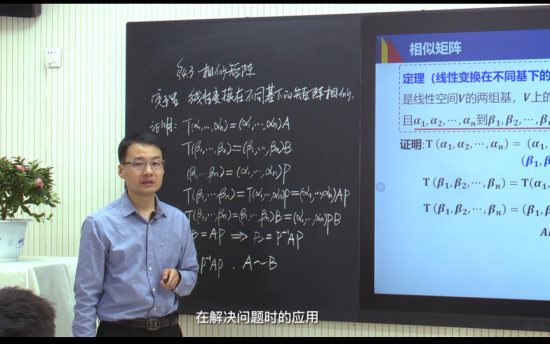 §4.3 相似矩阵
定理 线性变换在不同基下的矩阵相似.
证明: T(α₁,⋯,αₙ)=(α₁,⋯,αₙ)A
T(β₁,⋯,βₙ)=(β₁,⋯,βₙ)B
(β₁,⋯,βₙ)=(α₁,⋯,αₙ)P
T(β₁,⋯,βₙ)=T(α₁,⋯,αₙ)P=(α₁,⋯,αₙ)AP
T(β₁,⋯,βₙ)=(β₁,⋯,βₙ)B=(α₁,⋯,αₙ)PB
B=AP ⟹ B=P⁻¹AP
P⁻¹AP, A~B
相似矩阵
定理(线性变换在不同基下的
是线性空间V的两组基,V上的
且α₁,α₂,⋯,αₙ到β₁,β₂,⋯,β
证明:T(α₁,α₂,⋯,αₙ)=(α₁,
(β₁,
T(β₁,β₂,⋯,βₙ)=T(α₁,
T(β₁,β₂,⋯,βₙ)=(β₁,
A
在解决问题时的应用